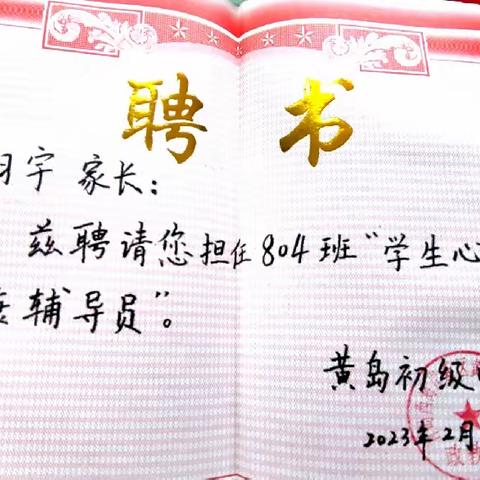 聘书
宇 家长：
兹聘请您担任804班“学生心
辅导员”。
黄岛初级
2023年2月